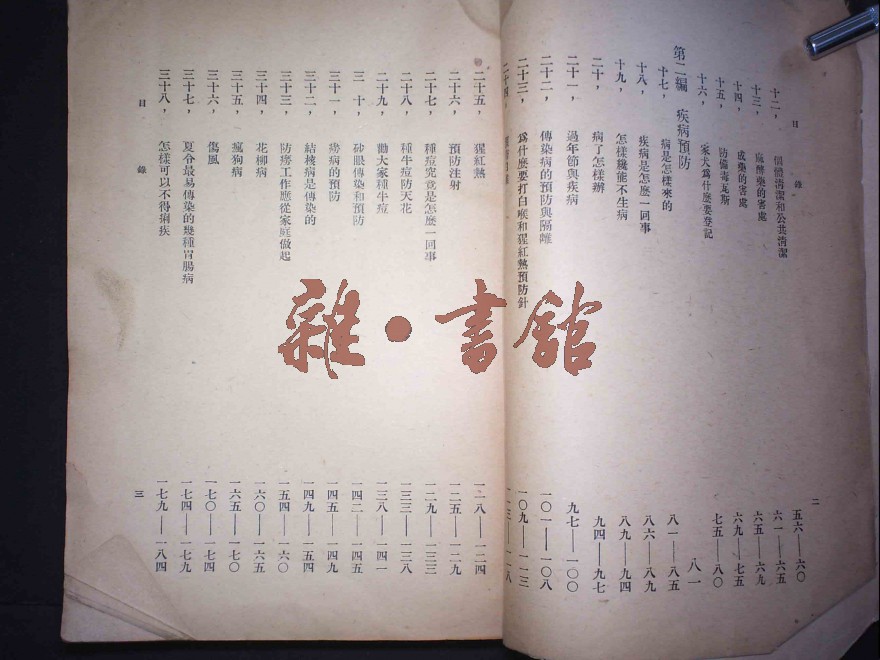 目錄 二
十二， 個體清潔和公共清潔 五六——六〇
十三， 麻醉藥的害處 六一——六五
十四， 成藥的害處 六五——六九
十五， 防備毒瓦斯 六九——七五
十六， 家犬爲什麼要登記 七五——八〇
第二編 疾病預防 八一
十七， 病是怎樣來的 八一——八五
十八， 疾病是怎麼一回事 八六——八九
十九， 怎樣纔能不生病 八九——九四
二十， 病了怎樣辦 九四——九七
二十一， 過年節與疾病 九七——一〇〇
二十二， 傳染病的預防與隔離 一〇一——一〇八
二十三， 爲什麼要打白喉和猩紅熱預防針 一〇九——一一三
二十四， 一一三——一一八
二十五， 猩紅熱 一一八——一二四
二十六， 預防注射 一二五——一二九
二十七， 種痘究竟是怎麼一回事 一二九——一三三
二十八， 種牛痘防天花 一三三——一三八
二十九， 勸大家種牛痘 一三八——一四一
三十， 砂眼傳染和預防 一四二——一四五
三十一， 癆病的預防 一四五——一四九
三十二， 結核病是傳染的 一四九——一五四
三十三， 防癆工作應從家庭做起 一五四——一六〇
三十四， 花柳病 一六〇——一六五
三十五， 瘋狗病 一六五——一七〇
三十六， 傷風 一七〇——一七四
三十七， 夏令最易傳染的幾種胃腸病 一七四——一七九
三十八， 怎樣可以不得痢疾 一七九——一八四
目錄 三
雜·書館